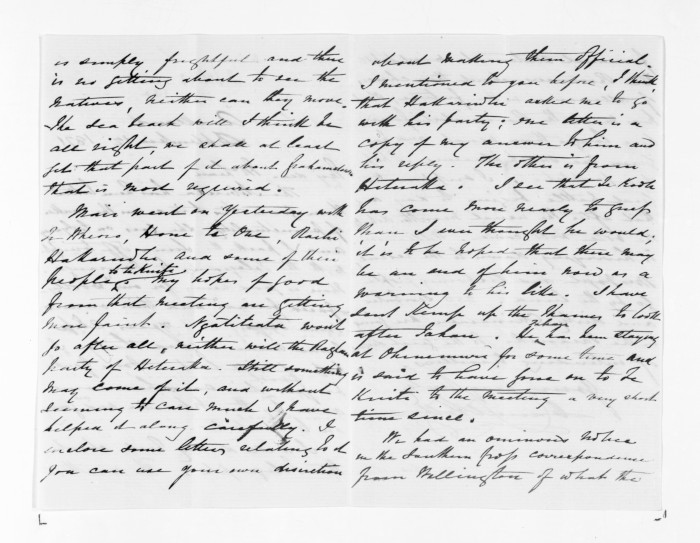 is simply frightful and there
is no getting about to see the
natives, neither can they move.
The sea beach will I think be
all right, we shall at least
get that part of it about
that is most required.
Mair went on yesterday with
Te Wheoro, Hone te One,
Hakaraia and some of their
people to te Kuiti. My hopes of good
from that meeting are getting
more faint. Ngatitata won't
go after all, neither will the Raglan
party of Hetaraka. Still something
may come of it, and without
seeming to care much I have
helped it along carefully. I
enclose some letters relating to it
you can use your own discretion
about making them official.
I mentioned to you before, I think,
that Hakariwhi asked me to go
with his party; one letter is a
copy of my answer to him and
his reply. The other is from
Hetaraka. I see that Te Kooti
has come more nearly to grief
than I ever thought he would;
it is to be hoped that there may
be an end of him now as a
warning to his like. I have
sent Kemp up the Thames to look
after Tekau. He has been staying
at Ohinemuri for some time and
is said to have gone on to Te
Kuiti to the meeting a very short
time since.
We had an ominous notice
in the Southern Cross correspondence
from Wellington of what the